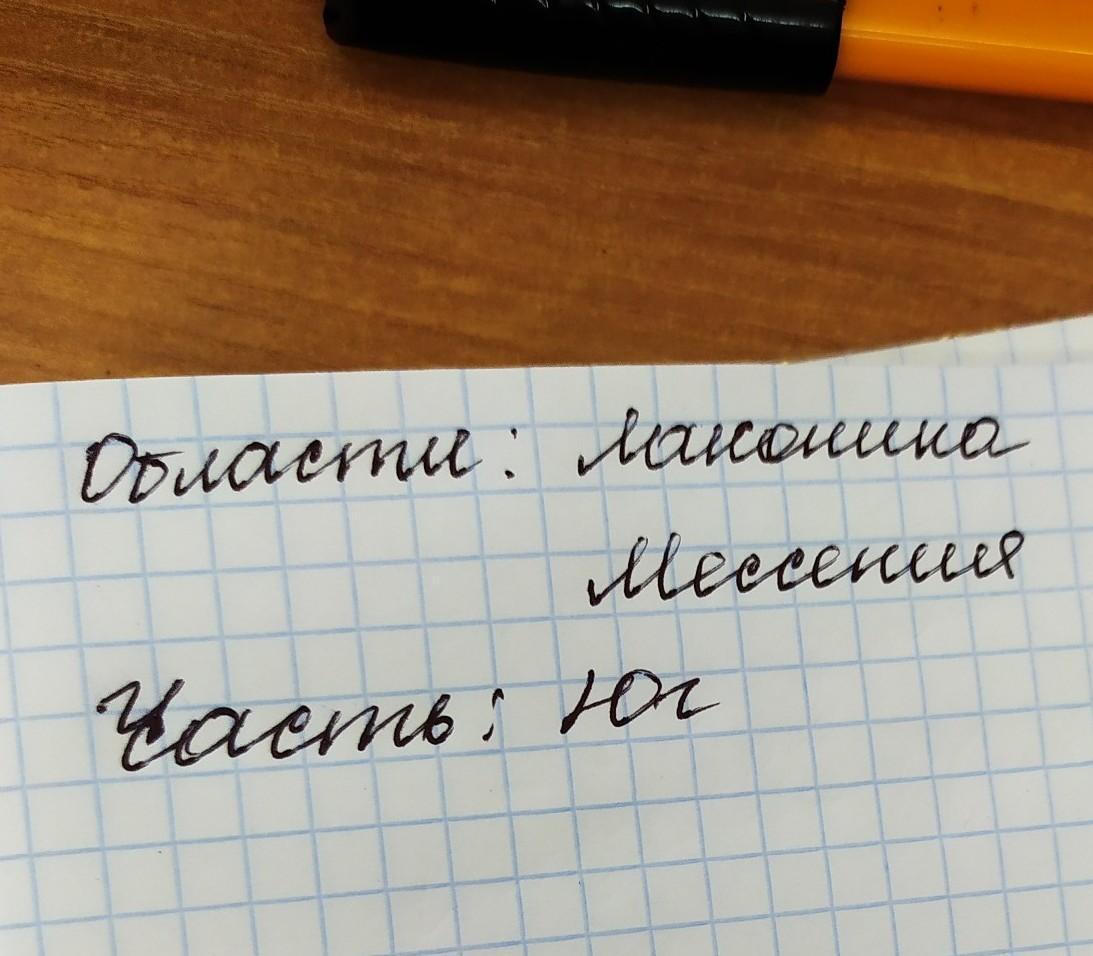 Области: Лаконика
Мессения
Часть: Юг